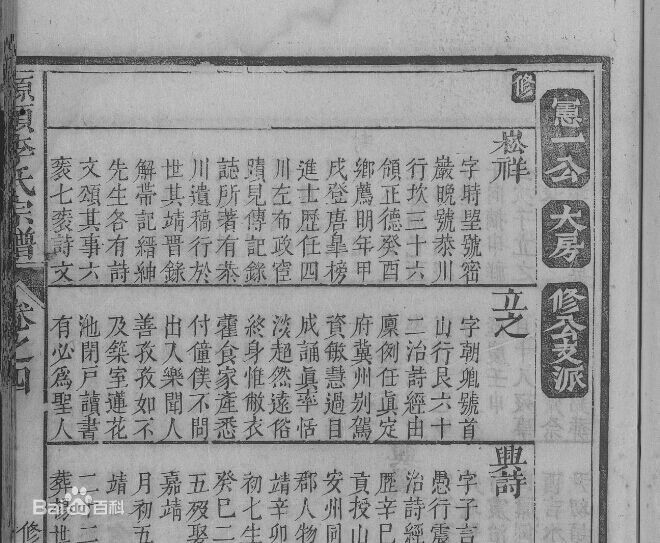 憲一公 大房 修公支派
修
崧祥
字時望號密
巖晚號恭川
行坎三十六
領正德癸酉
鄉薦明年甲
戌登唐臯榜
進士歷任四
川左布政宦
蹟見傳記錄
誌所著有恭
川遺稿行於
世其靖晉錄
解帶記縉紳
先生各有詩
文頌其事六
袠七袠詩文
立之
字朝卿號首
山行艮六十
二治詩經由
廩例任眞定
府冀州別駕
資敏慧過目
成誦眞率恬
淡超然遠俗
終身惟敝衣
藿食家產悉
付僮僕不問
出入樂聞人
善孜孜如不
及築室蓮花
池閉戶讀書
有必爲聖人
興詩
字子言
愚行震
治詩經
歷辛巳
貢授山
安州同
郡人物
靖辛卯
初七生
癸巳二
五歿娶
嘉靖
月初五
靖
源頭李氏宗譜 卷之四 修
Bai百科